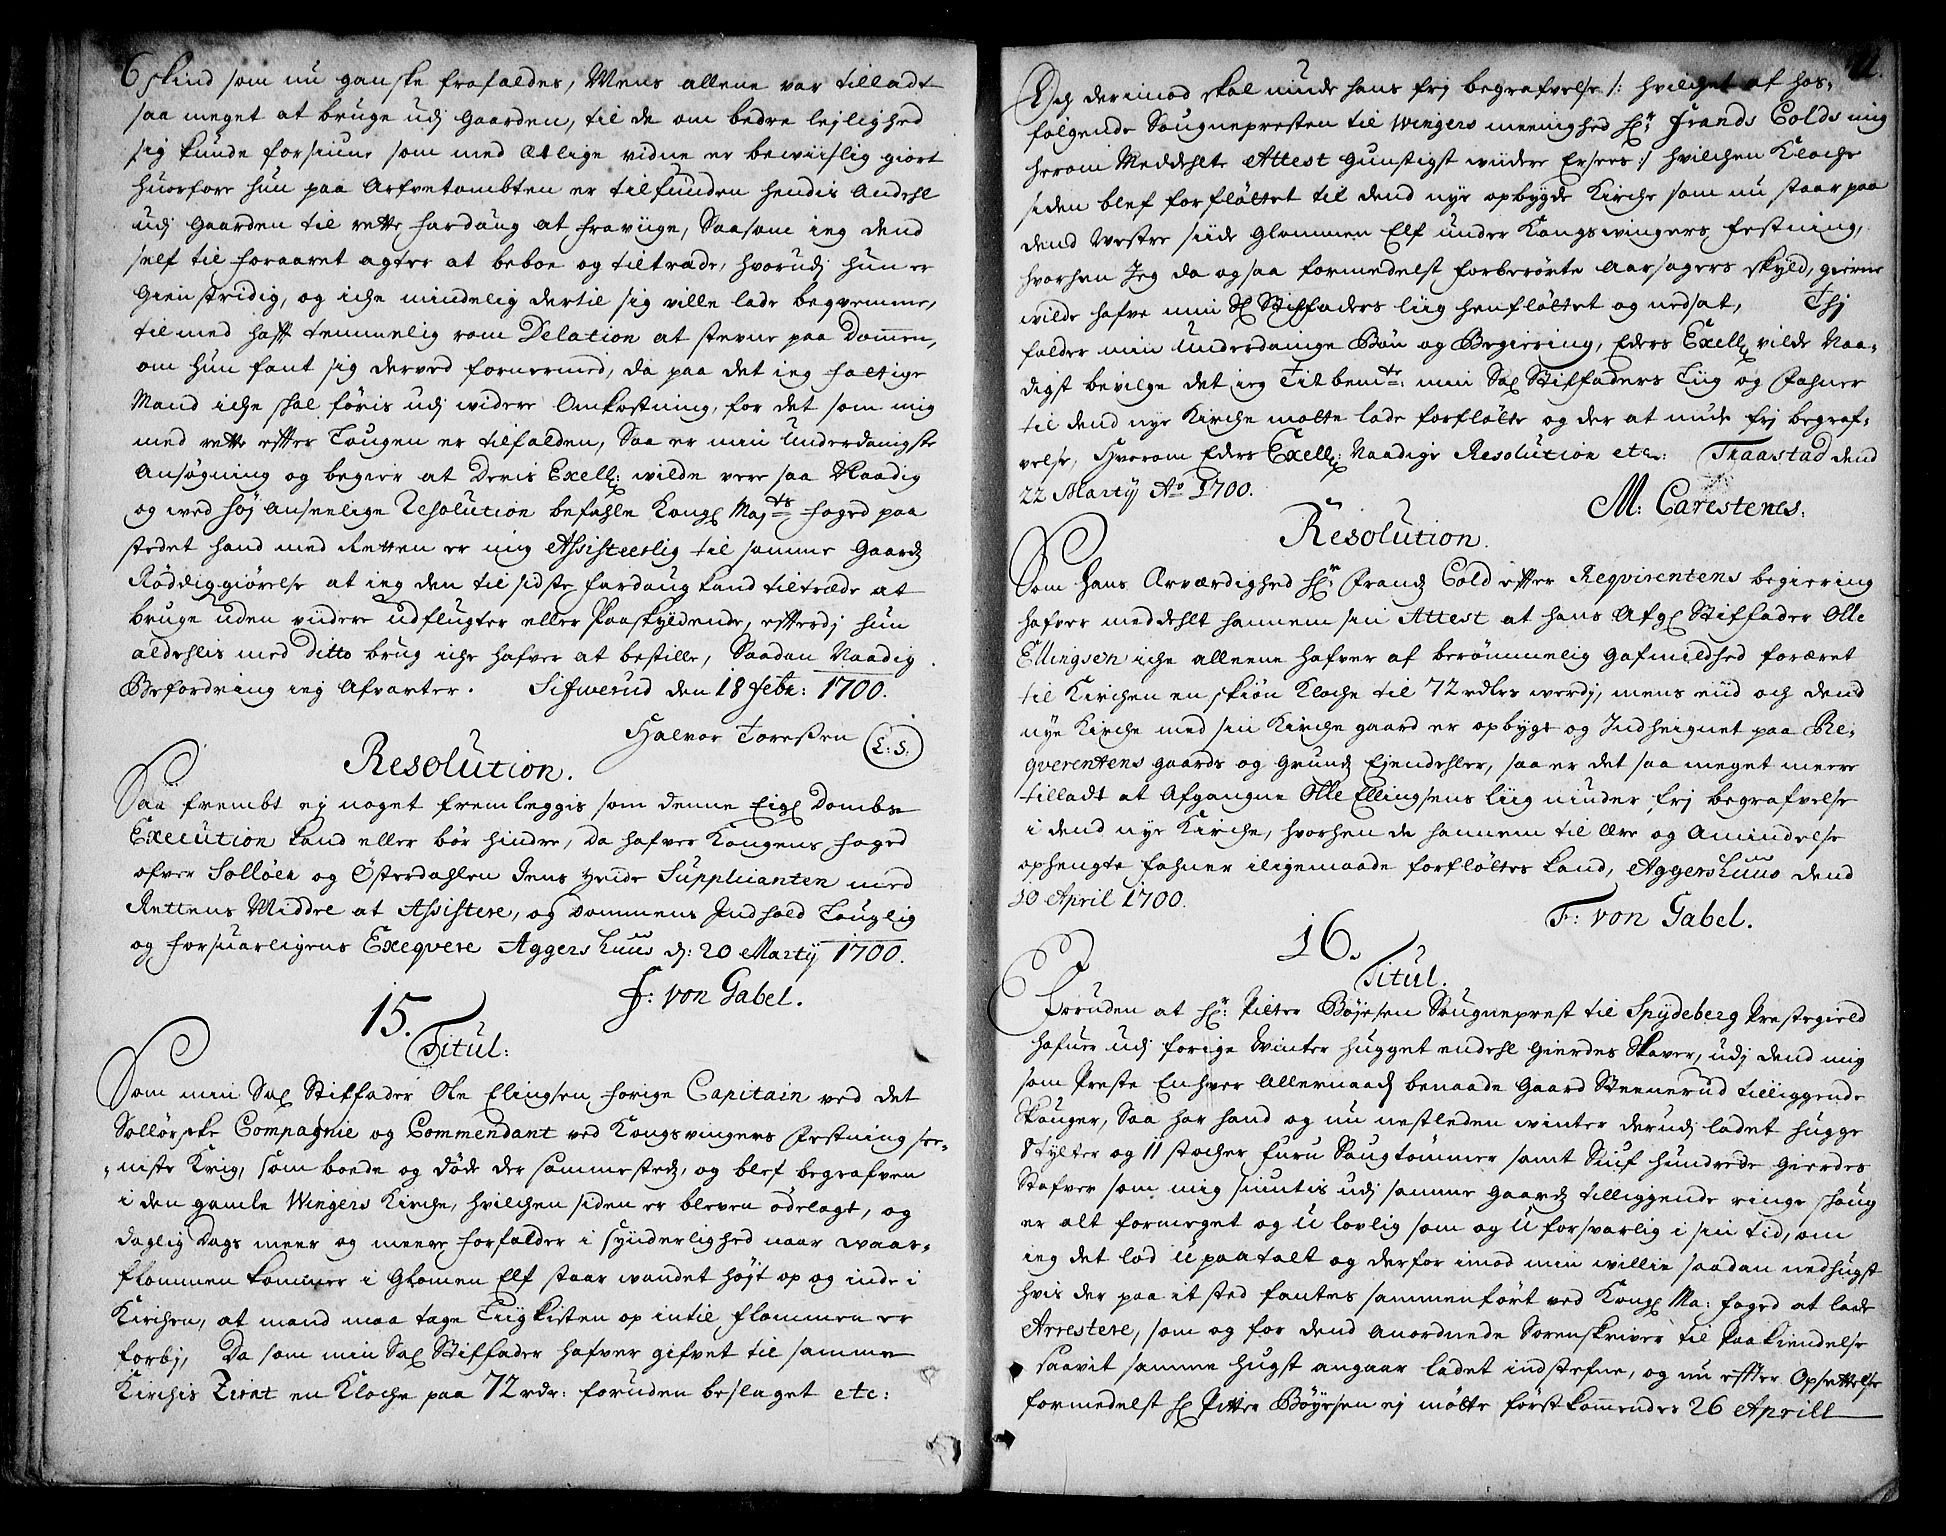 6 skind som nu ganske frafaldes, Mens allene var tilladt
saa meget at bruge udj Gaarden, til de om bedre lejlighed
sig kunde forsiune som med Ætlige vidne er bewiislig giort
huorfore hun paa Arfvetombten er tilfunden hendis Andehl
udj Gaarden til rette fardaug at fraviige, Saasom ieg dend
self til foraaret agter at beboe og tiltræde, hvorudj hun er
Gienstridig, og iche mindelig dertil sig ville lade beqvemme,
tilmed hafft temmelig rom Delation at stevne paa Dommen,
om hun fant sig derved fornermed, da paa det ieg fattige
Mand iche skal føris udj widere Omkostning, for det som mig
med rette effter Lougen er tilfalden, Saa er min Underdanigste
Ansøgning og begier at Deris Excell: wilde vere saa Naadig
og wed høj Ansenlige Resolution befahle Kongl Maj:ts foged paa
stedet hand med Retten er mig Assisteerlig til samme Gaards
Røddiggiørelse at ieg den til sidste fardaug kand tiltræde at
bruge uden viidere udflugter eller Paaskyldende, efterdj hun
aldehlis med Ditto brug iche hafver at bestille, Saadan Naadig
Befordring ieg Afvarter. Sifwerud den 18 Febr: 1700.
Halvor Toreßen L: S:
Resolution.
Saa frembt ej noget fremleggis som denne Eigl Dombs
Execution kand eller bør hindre, Da hafver Kongens foged
ofver Solløer og Østerdahlen Jens Heide Supplicanten med
Rettens Middel at Assistere, og Dommens Indhold Louglig
og forsuarligens Exeqvere Aggershuus d: 20 Martij 1700.
F: von Gabel.
15.
Titul:
Som min Sal Stiffader Ole Elingsen, forige Capitain ved det
Sollørske Compagnie og Commendant ved Kongsvingers Festning see-
niste Krig, som boede og døde der sammesteds, og blef begrafven
i den gamle Wingers Kirche, hvilchen siden er bleven ødelagt, og
daglig Dags meer og meere forfalder i synderlighed naar waar-
flommen kommer i Glomen Elf staar wandet højt op og inde i
Kirchen, at mand maa tage Liigkisten op intil flommen er
forbj, Da som min Sal Stiffader hafver gifvet til samme
Kirchis Zirat en Kloche paa 72 rdr: foruden beslaget etc:
Och derimod skal niude hans frj begrafvelse /: hvilchet af hos-
følgende Sougneprestn til Wingers meenighed Hr: Frands Colds mig
herom Meddehlte Attest Gunstigst wiidere Ersees :/ hvilchen Kloche
siden blef forfløttet til dend nye opbygde Kirche som nu staar paa
dend Westre siide Glommen Elf under Kongswingers festning,
hvorhen Jeg da ogsaa formedelst forberørte Aarsagers skyld, gierne
wilde hafve min Sl Stiffaders liig henfløttet og nedsat, Thj
falder min Underdanige Bøn og Begiering, Eders Excell vilde Naa-
digst bevilge det ieg Titbemte: min Sal Stiffaders Liig og Fahner
til dend nye Kirche motte lade forfløtte og der at niude frj begraf-
velse, Hvorom Eders Excell: Naadige Resolution etc: Traastad dend
22 Martij Ao 1700.
M: Carestenes.
Resolution.
Som Hans Ærværdighed Hr Frands Cold efter Reqvirentens begiering
hafver meddehlt hannem sin Attest at hans Afgl Stiffader Olle
Ellingsen iche alleene hafver af berømmelig Gafmildhed foræret
til Kirchen en skiøn Kloche til 72 rdlrs werdj, mens end och dend
nye Kirche med sin Kirchegaard er opbygt og Indheignet paa Re-
qverentens Gaards og Grunds Ejendehler, saa er det saa meget meere
tilladt at Afgangne Olle Ellingsens Liig niuder frj begrafvelse
i dend nye Kirche, hvorhen de hannem til Ære og Amindelse
ophengte fahner iligemaade forfløttes kand, Aggershuus dend
10 April 1700.
F: von Gabel.
16.
Titul.
Foruden at Hr: Pitter Bøjesen Sougneprest til Spydeberg Prestegield
hafuer udj forige Winter hugget endehl Gierdes Staver, udj dend mig
som Preste Enhver Allernaads benaade Gaard Steenerud tilliggende
Skouger, Saa har hand og nu nestleden winter derudj ladet hugge
8 tylter og 11 stocher furu Saugtømmer samt Siuf hundrede Gierdes
Stafver som mig siuntis udj samme Gaards tilliggende ringe skoug
er alt formeget og U lovlig som og U forsvarlig i sin tid, om
ieg det lod u paatalt og derfor imod min willie saadan nedhugst
hvis der paa it sted fantes sammenført ved Kongl Ma: foged at lade
Arrestere, som og for dend Anordnede Sorenskriver til Paakiendelse
saavit samme hugst angaar ladet indstefne, og nu effter Opsettelse
formedelst Hr Pitter Bøyesen ej møtte førstkommendes 26 Aprill